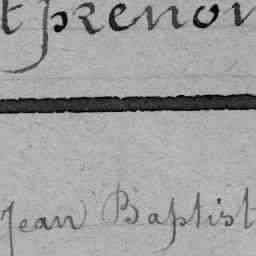 t prénom
Jean Baptist